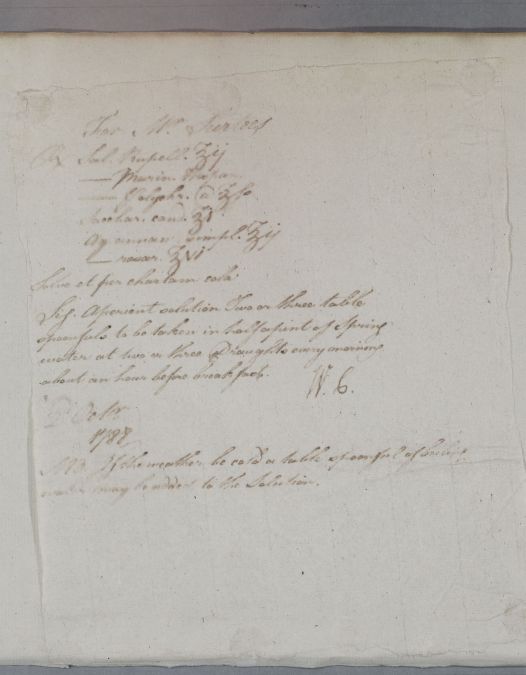 For Mr
Rx Sal. Rupell. ʒij
— Marin.
— @ ʒſs
Sacchar. cand. ʒi
Aq simpl. ʒij
— rosar. ʒvi
Solve et per chartam cola.
Sig. Aperient solution Two or three table
spoonfuls to be taken in half a pint of Spring
water at two or three Draughts every morning
about an hour before breakfast.
W. C.
Octr.
1788
NB. If the weather be cold a table spoonful of boiling
water may be added to the Solution.